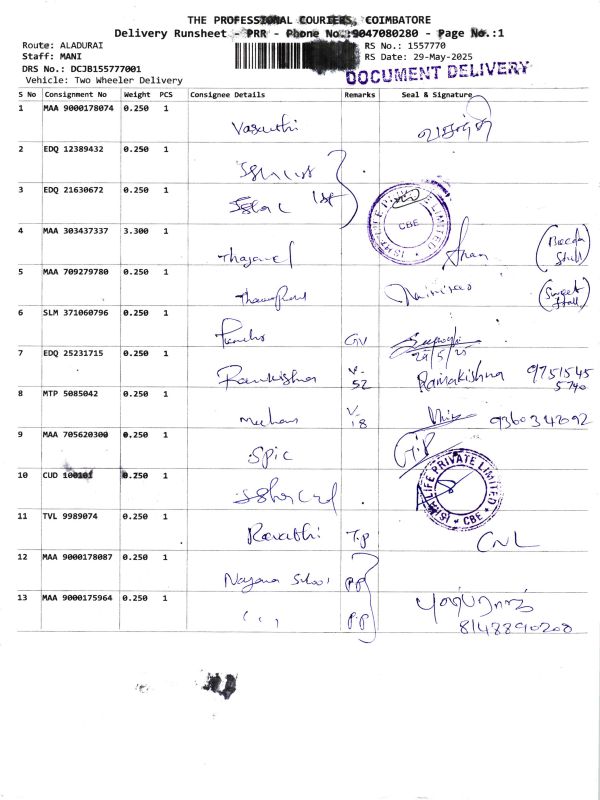 THE PROFESSIONAL COURIERS, COIMBATORE
Delivery Runsheet - PRR - Phone No.:9047080280 - Page No.:1
Route: ALADURAI
RS No.: 1557770
Staff: MANI
RS Date: 29-May-2025
DRS No.: DCJB155777001
DOCUMENT DELIVERY
Vehicle: Two Wheeler Delivery
S No Consignment No Weight PCS Consignee Details Remarks Seal & Signature
1 MAA 9000178074 0.250 1 Vasanthi
2 EDQ 12389432 0.250 1
3 EDQ 21630672 0.250 1
ISHA LIFE PRIVATE LIMITED CBE
4 MAA 303437337 3.300 1
5 MAA 709279780 0.250 1 (Sweet Stall)
6 SLM 371060796 0.250 1 GV
29/5/25
7 EDQ 25231715 0.250 1 Ramkrishna V-52 Ramakrishna 9751545
5740
8 MTP 5085042 0.250 1 V-18 9360342092
9 MAA 705620300 0.250 1 Spic G.P
10 CUD 100101 0.250 1
ISHA LIFE PRIVATE LIMITED CBE
11 TVL 9989074 0.250 1 Revathi T.P CNL
12 MAA 9000178087 0.250 1 Nayana P.P
13 MAA 9000175964 0.250 1 P.P
8148890208